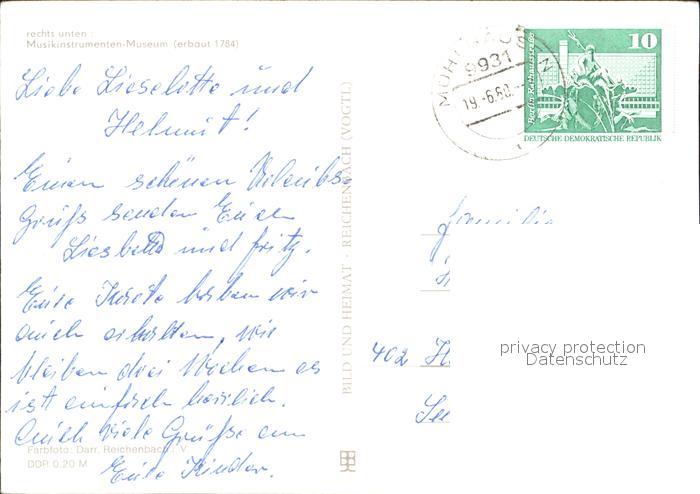 rechts unten :
Musikinstrumenten-Museum (erbaut 1784)
Liebe Lieselotte und
Helmut!
Einen schönen Urlaubs-
gruß senden Euch
Liesbeth und Fritz.
Eure Karte haben wir
auch erhalten, wir
bleiben drei Wochen es
ist einfach herrlich.
Auch viele Grüße an
Eure Kinder.
Farbfoto: Darr, Reichenbach i. V.
DDR 0,20 M
BILD UND HEIMAT · REICHENBACH (VOGTL)
9931
19.-6.80.-
10
Berlin-Rathausstraße
DEUTSCHE DEMOKRATISCHE REPUBLIK
Familie
402 H
privacy protection
Datenschutz